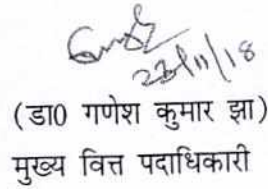 23/11/18
(डा0 गणेश कुमार झा)
मुख्य वित्त पदाधिकारी